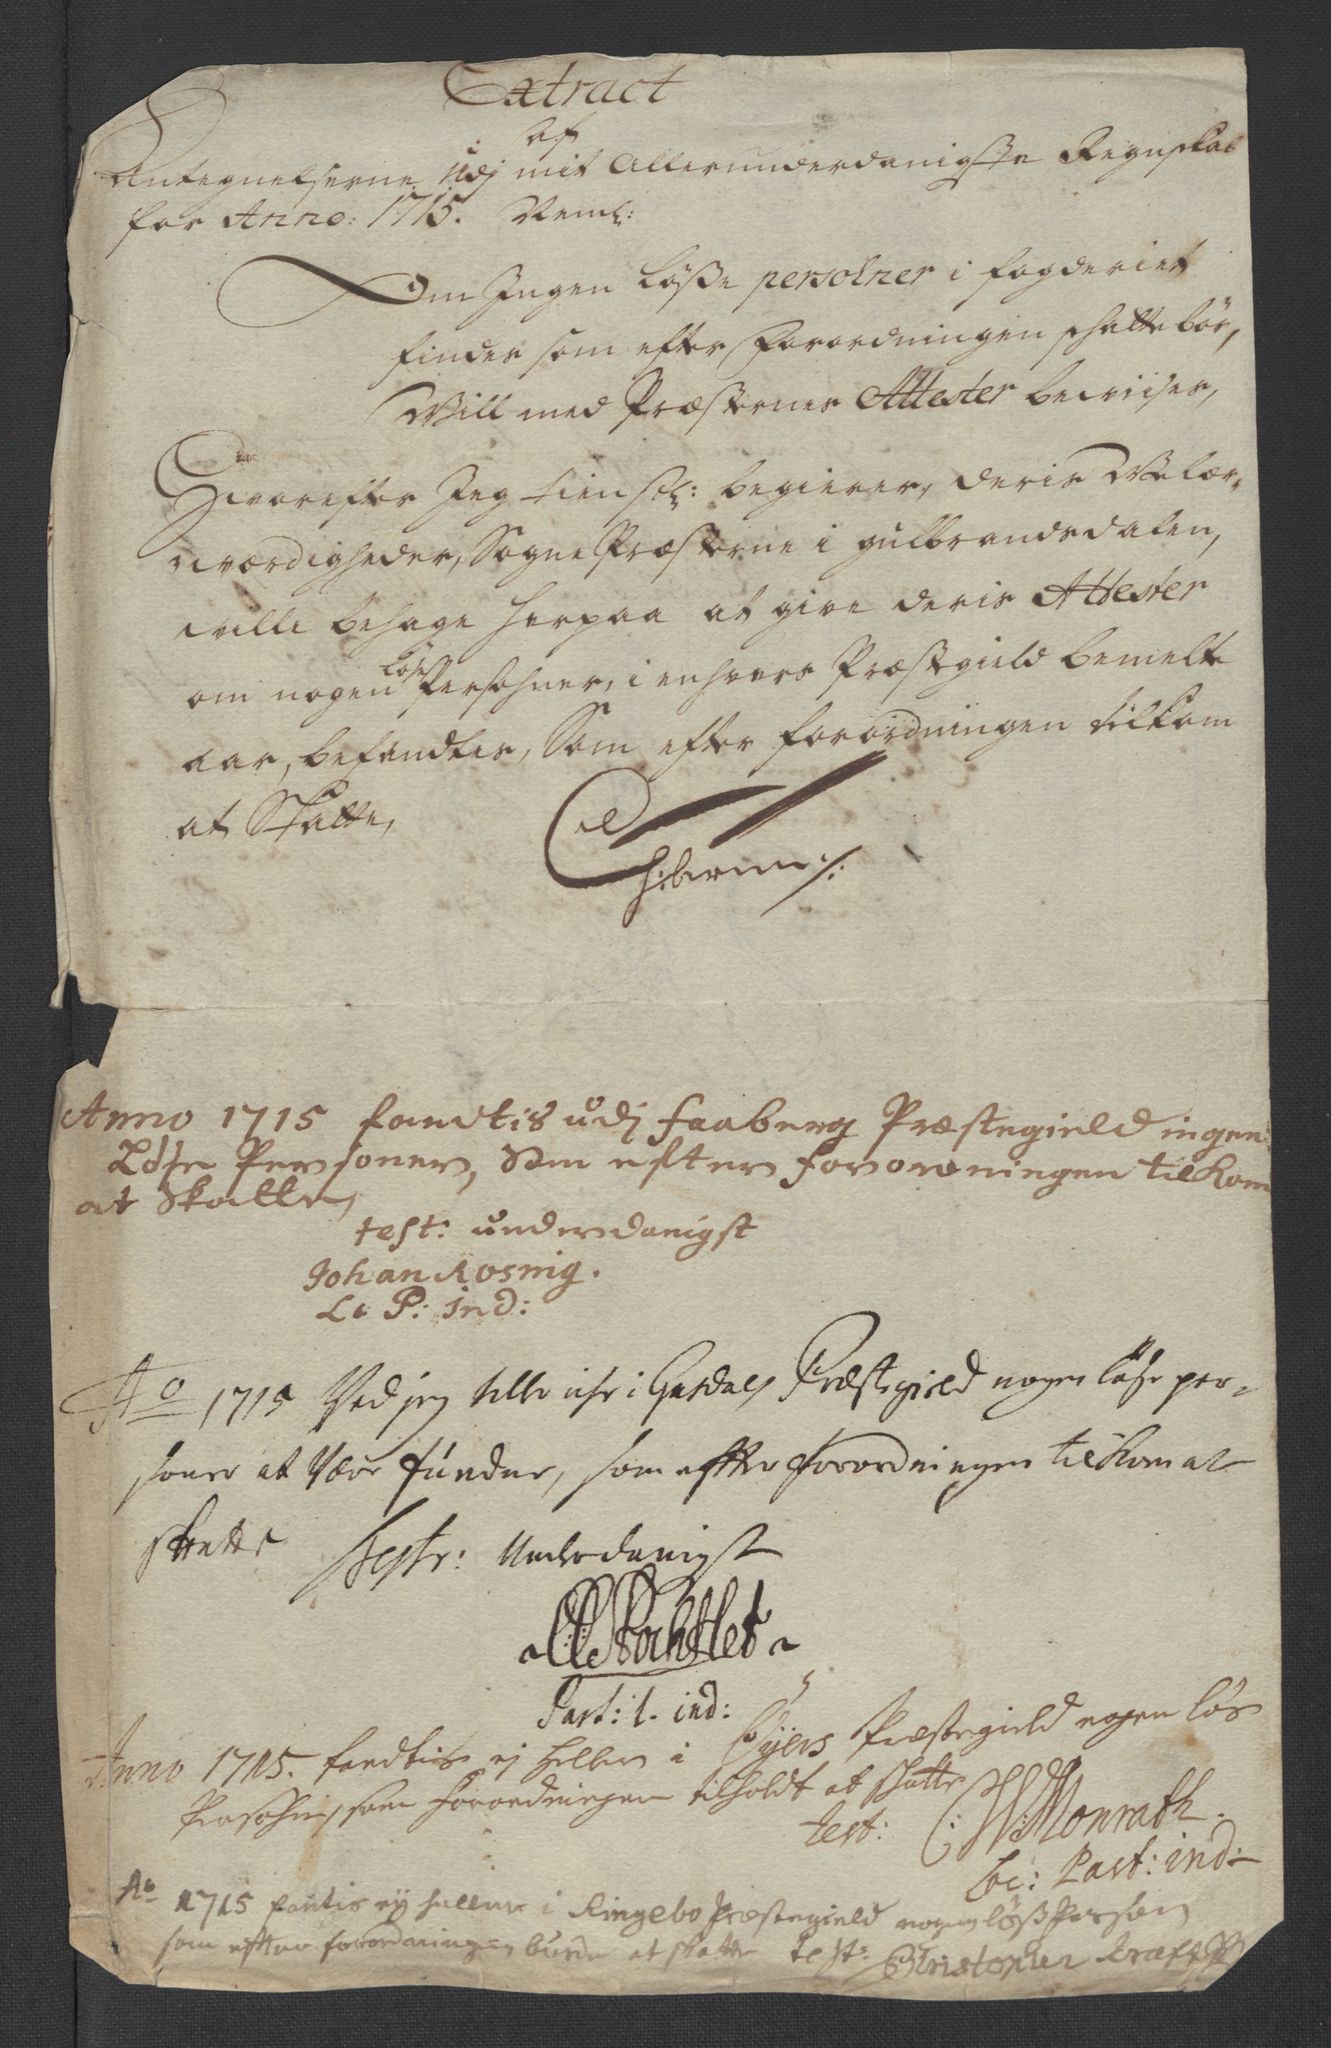 Extract
af
Antegnelserne udj mit Allerunderdanigste Regnskab
for Anno: 1715. Neml:
Om Ingen Løsse persohner i fogderiet
findes som efter Forordningen schatte bör,
Will med Præsternes Attester beviises,
Hvorefter Jeg tienstl: begierer, deris Velær-
værdigheder, SognePræsterne i gulbrandsdalen,
ville behage herpaa at give deris Attester
om nogen Løse Persohner, i enhvers Præstegield bemelte
aar, befandtes, Som efter forordningen tilkom
at Skatte,
Anno 1715 fandtis udj faaberg Præstegield ingen
Løse Personer, Som efter forordningen tilkom
at Skatte,
test: underdanigst
Johan Rosnig.
L: P: ind:
Ao 1715 Ved jeg eller icke i Gusdals Præstegield nogen løse per-
soner at være funden, som effter forordningen tilkom at
skatte Test: Underdanigst
Past: l. ind:
Anno 1715. fandtis ej heller i Öyers Præstegield nogen løs
Persohn, som Forordningen tilholdt at skatte
test: C: W: Monrath.
Loc: Past: ind:
Ao 1715 fantis ey heller i Ringebo Præstegield nogen løss Person
som efter forordningen burde at skatte test: Christopher Kræft